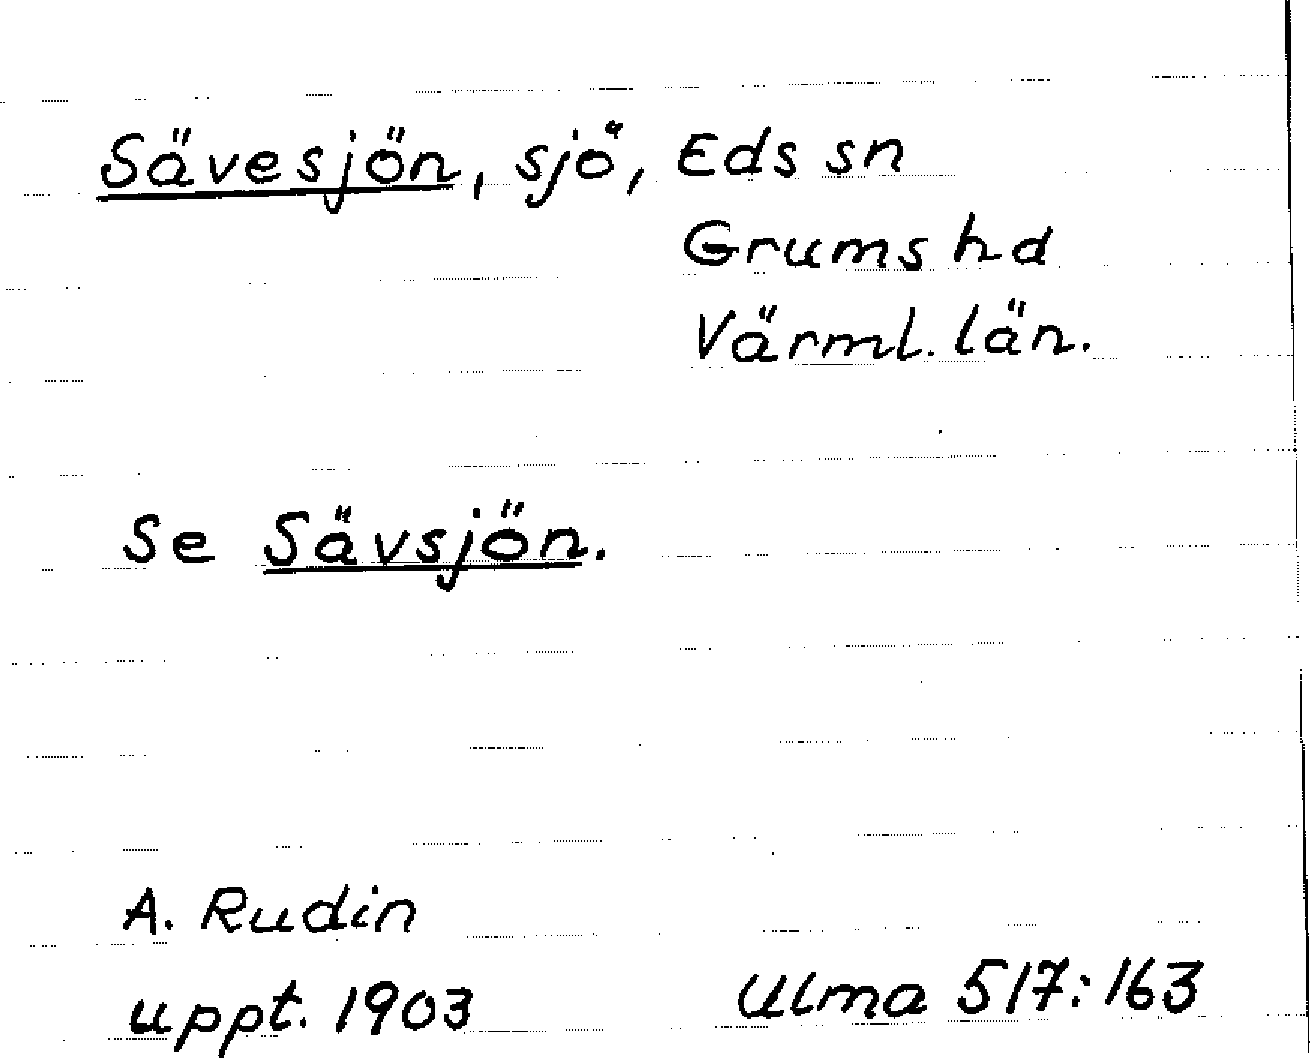 Sävesjön, sjö, Eds sn
Grums hd
Värml. län.
Se Sävsjön.
A. Rudin
uppt. 1903
Ulma 517:163